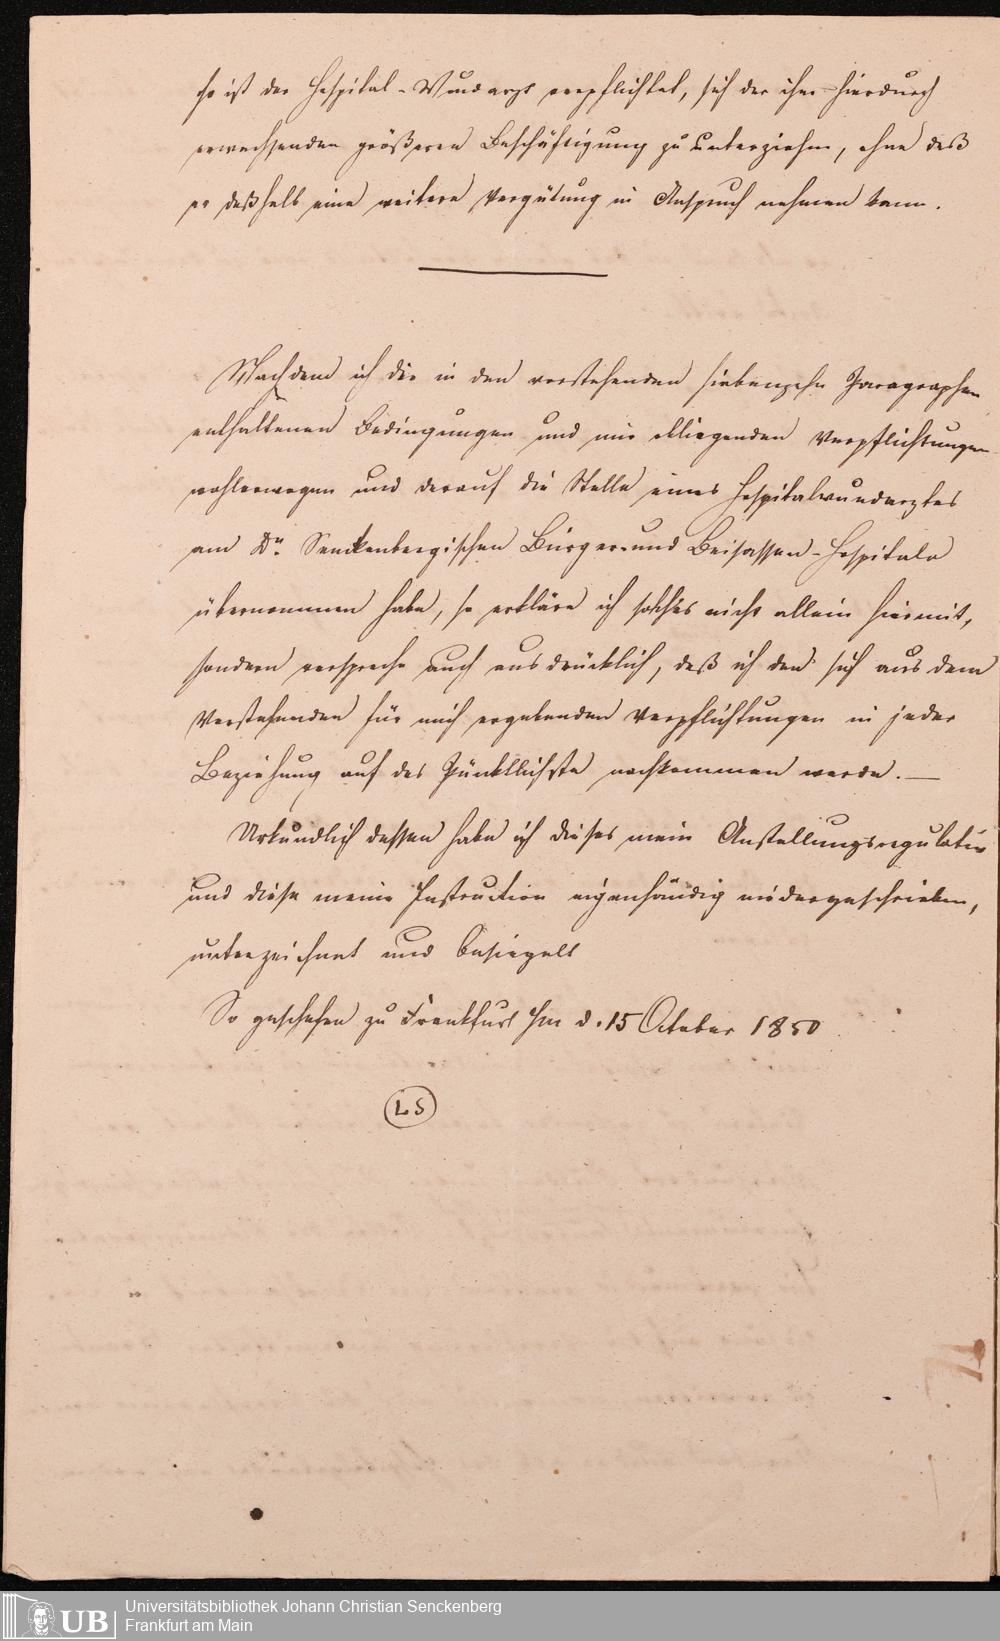 so ist der Hospital-Wundarzt verpflichtet, sich der ihm hierdurch
erwachsenden größeren Beschäftigung zu unterziehen, ohne daß
er deßhalb eine weitere Vergütung in Anspruch nehmen kann.
Nachdem ich die in den vorstehenden siebenzehn Paragraphen
enthaltenen Bedingungen und mir obliegenden Verpflichtungen
wohlerwogen und darauf die Stelle eines Hospitalwundarztes
am Dr. Senckenbergischen Bürger- und Beisassen-Hospitale
übernommen habe, so erkläre ich solches nicht allein hiermit,
sondern verspreche auch ausdrücklich, daß ich den sich aus dem
Vorstehenden für mich ergebenden Verpflichtungen in jeder
Beziehung auf das Pünktlichste nachkommen werde.—
Urkundlich dessen habe ich dieses mein Anstellungsregulativ
und diese meine Instruction eigenhändig niedergeschrieben,
unterzeichnet und besiegelt
So geschehen zu Frankfurt a/m d. 15 October 1850
LS
UB
Universitätsbibliothek Johann Christian Senckenberg
Frankfurt am Main